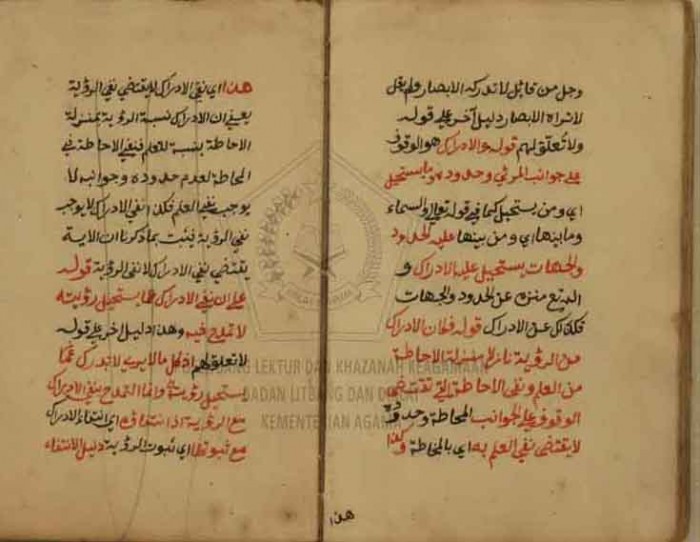 وجل من قائل لا تدركه الابصار ولم يقل
لا تراه الابصار دليل آخر على قوله
ولا تعلق لهم قوله والادراك هو الوقوف
على جوانب المرئي وحدوده وما يستحيل
اي ومن يستحيل كما في قوله تعالى والسماء
وما بينها اي ومن بينها عليه الحدود
والجهات يستحيل عليه الادراك و
البديع منزه عن الحدود والجهات
فكذلك عن الادراك قوله فكان الادراك
من الرؤية نازلا منزلة الاحاطة
من العلم ونفي الاحاطة التي تقتضي
الوقوف على الجوانب المحاطة وحدوده
لا يقتضي نفي العلم به اي بالمحاطة وكذا
هذا
هذا اي نفي الادراك لا يقتضي نفي الرؤية
يعني ان الادراك نسبة الرؤية بمنزلة
الاحاطة بنسبة للعلم فنفي الاحاطة في
المحاطة لعدم حدوده وجوانبه لا
يوجب نفي العلم فكذا نفي الادراك لا يوجب
نفي الرؤية فيثبت بما ذكرنا ان الآية
يقتضي نفي الادراك لا نفي الرؤية قوله
على ان نفي الادراك عما يستحيل رؤيته
لا تمدح فيه وهذا دليل اخر على قوله
لا تعلق لهم اذ كل ما لا يرى لا يدرك عما
يستحيل رؤيته وانما التمدح بنفي الادراك
مع الرؤية اذ انتفاؤه اي انتفاء الادراك
مع ثبوتها اي ثبوت الرؤية دليل الانتفاء
LEKTUR DAN KHAZANAH KEAGAMAAN
BADAN LITBANG DAN DIKLAT
KEMENTERIAN AGAMA